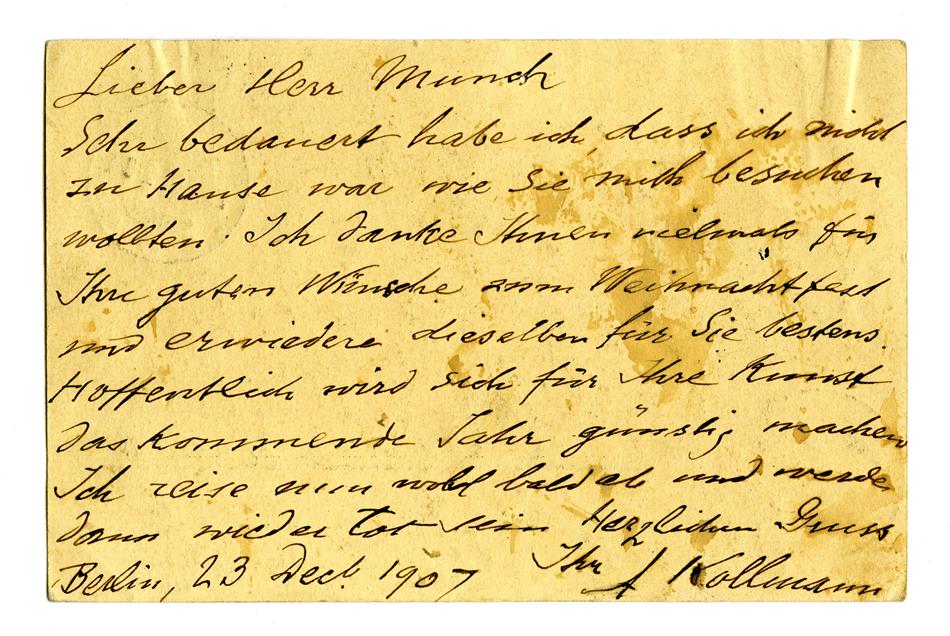 Lieber Herr Munch
Sehr bedauert habe ich, dass ich nicht
zu Hause war wie Sie mich besuchen
wollten. Ich danke Ihnen vielmals für
Ihre guten Wünsche zum Weihnachtfest
und erwiedere dieselben für Sie bestens.
Hoffentlich wird sich für Ihre Kunst
das kommende Jahr günstig machen
Ich reise nun wohl bald ab und werde
dann wieder tot sein Herzlichen Gruss
Berlin, 23 Dect. 1907 Ihr A Kollmann